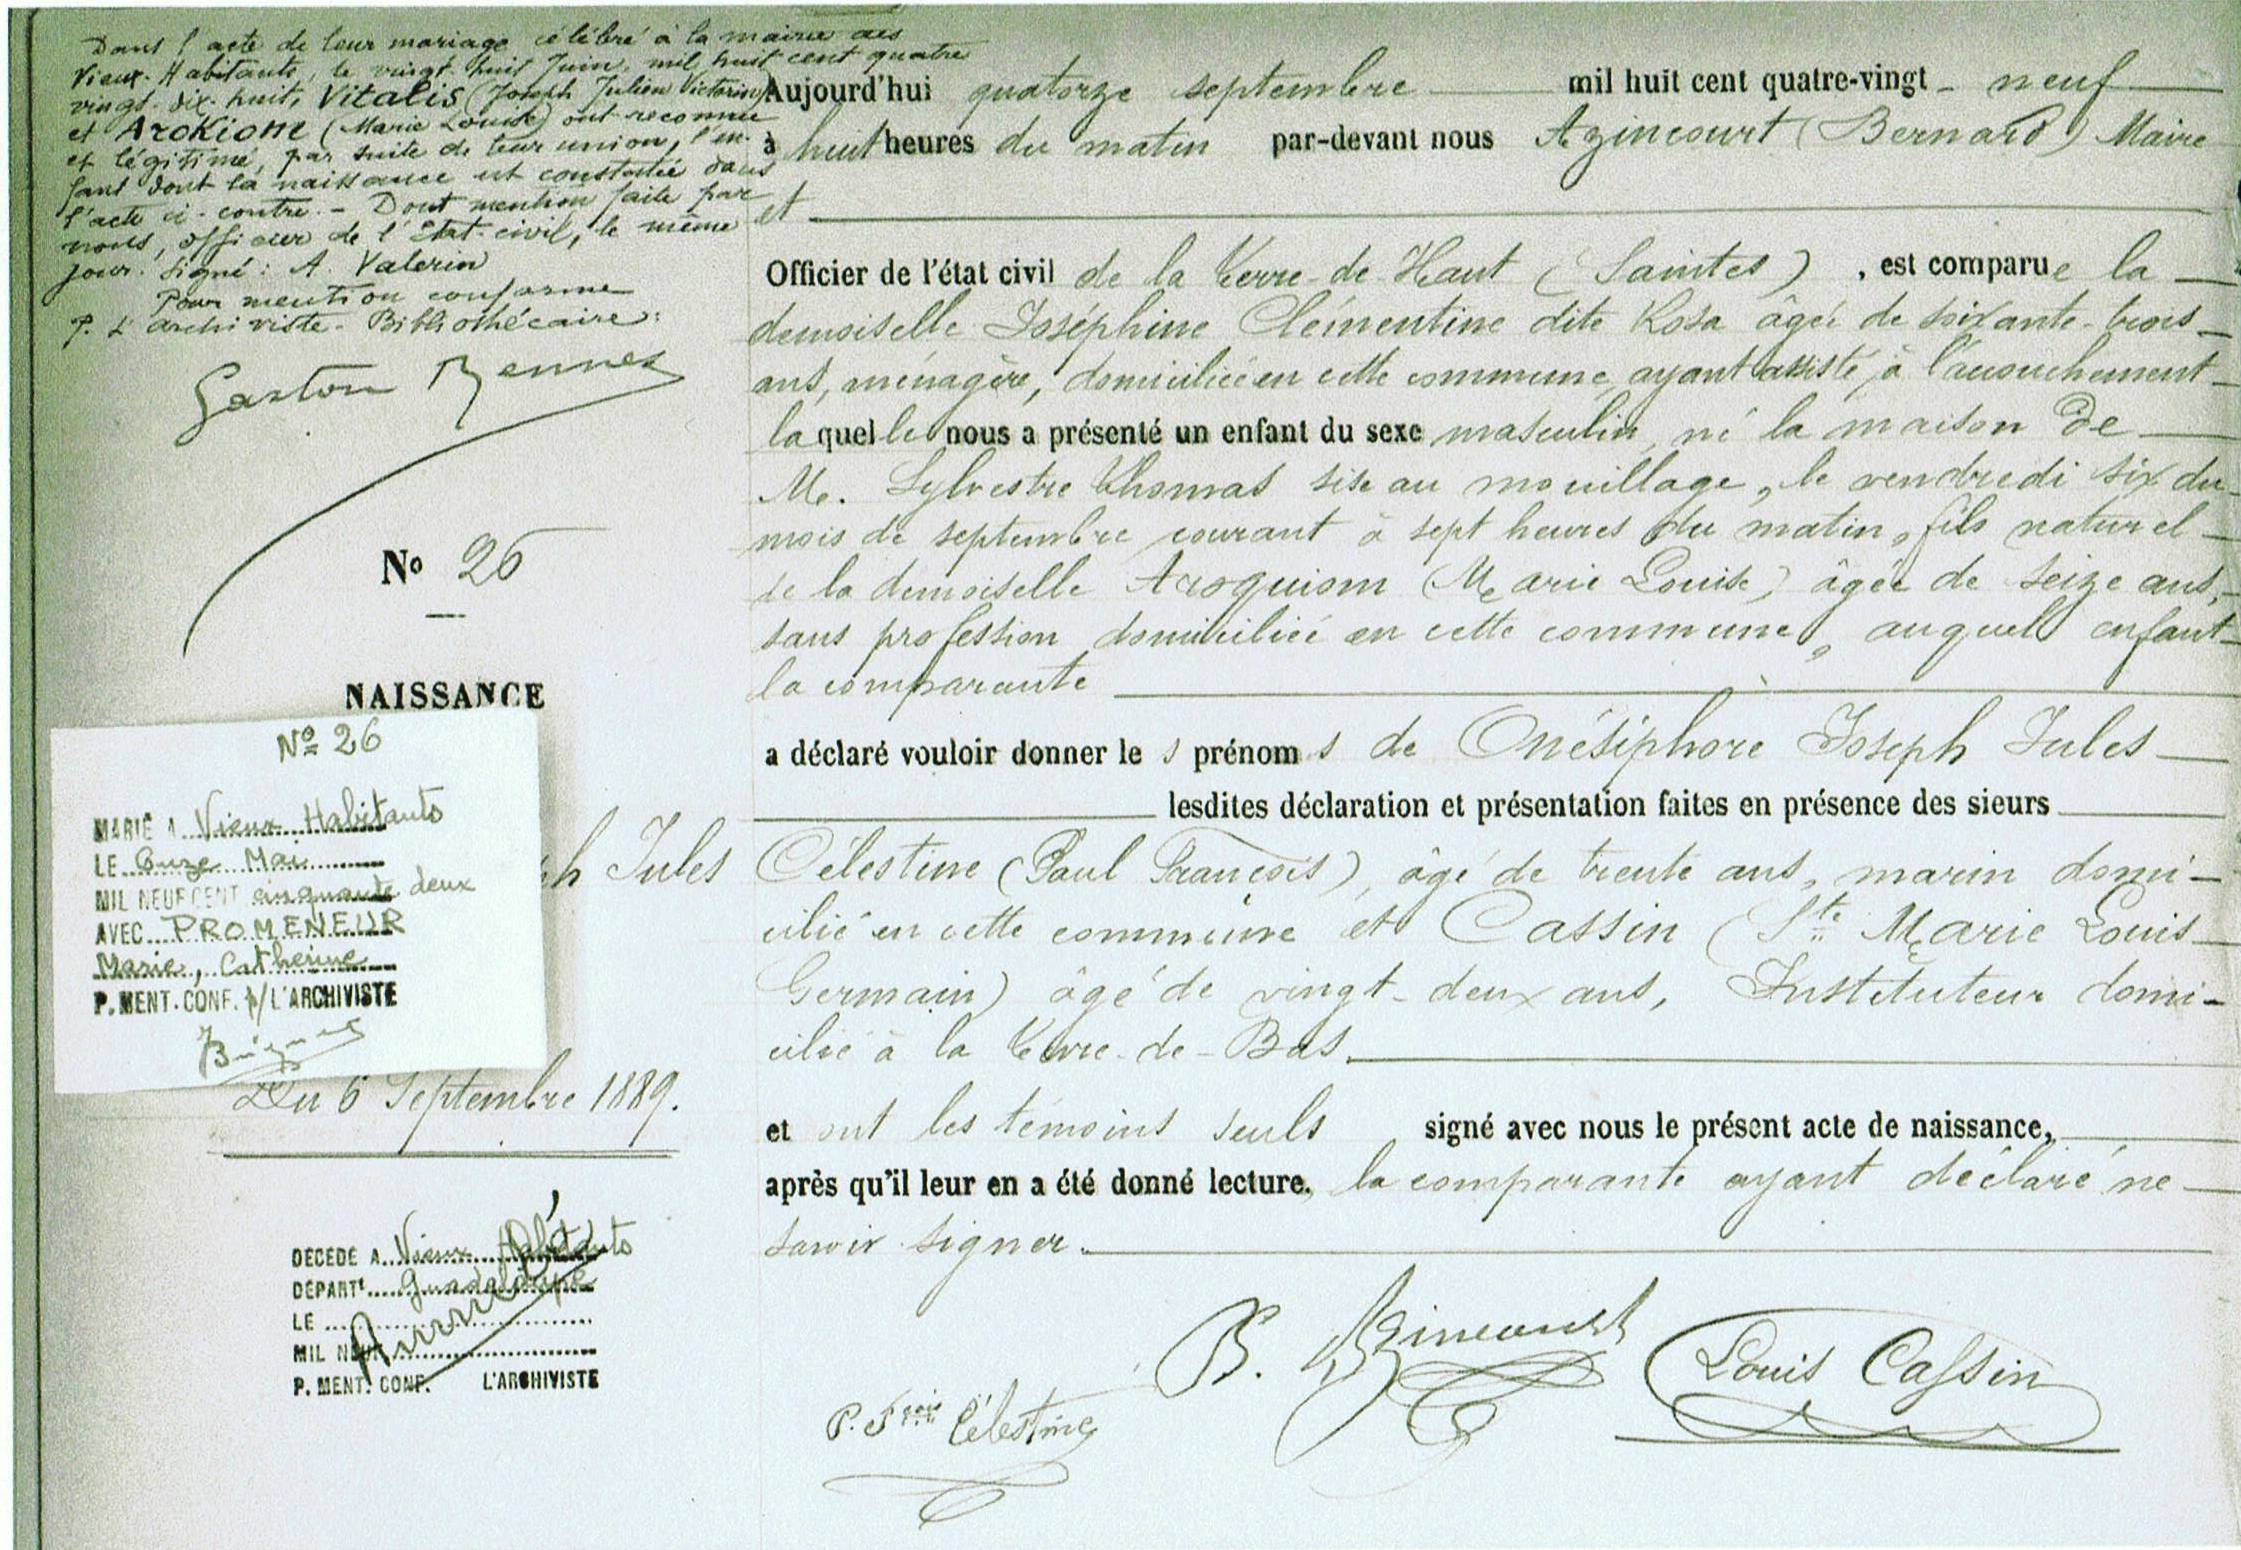 Dans l'acte de leur mariage célébré à la mairie des
Vieux-Habitants, le vingt-huit Juin, mil huit cent quatre
vingt-dix-huit, Vitalis (Joseph Julien Victorin)
et Arokione (Marie Louise) ont reconnu
et légitimé, par suite de leur union, l'en-
fant dont la naissance est constatée dans
l'acte ci-contre. - Dont mention faite par
nous, officier de l'Etat-civil, le même
jour. Signé: A. Valerin
Pour mention conforme
P. L'archiviste-Bibliothécaire:
Gaston Rennes
No 26
NAISSANCE
No 26
MARIÉ A Vieux Habitants
LE Onze Mai
MIL NEUF CENT cinquante deux
AVEC PROMENEUR
Marie, Catherine
P. MENT. CONF. P/ L'ARCHIVISTE
h Jules
Du 6 Septembre 1889.
DÉCÉDÉ A Vieux Habitants
DÉPART Guadeloupe
LE
MIL NEUF
Annulé
P. MENT. CONF. L'ARCHIVISTE
Aujourd'hui quatorze septembre mil huit cent quatre-vingt-neuf
à huit heures du matin par-devant nous Azincourt (Bernard) Maire
et
Officier de l'état civil de la Terre-de-Haut (Saintes), est comparue la
demoiselle Joséphine Clémentine dite Rosa âgée de soixante-trois
ans, ménagère, domiciliée en cette commune, ayant assisté à l'accouchement
laquelle nous a présenté un enfant du sexe masculin, né la maison de
M. Sylvestre Thomas sise au mouillage, le vendredi six du
mois de septembre courant à sept heures du matin, fils naturel
de la demoiselle Aroquiom (Marie Louise) âgée de seize ans,
sans profession domiciliée en cette commune, auquel enfant
la comparante
a déclaré vouloir donner les prénoms de Onésiphore Joseph Jules
lesdites déclaration et présentation faites en présence des sieurs
Célestine (Paul François), âgé de trente ans, marin domi-
cilié en cette commune et Cassin (Ste Marie Louis
Germain) âgé de vingt-deux ans, Instituteur domi-
cilié à la Terre-de-Bas.
et ont les témoins seuls signé avec nous le présent acte de naissance,
après qu'il leur en a été donné lecture, la comparante ayant déclaré ne
savoir signer.
P. Fçois Célestine
B. Azincourt
Louis Cassin